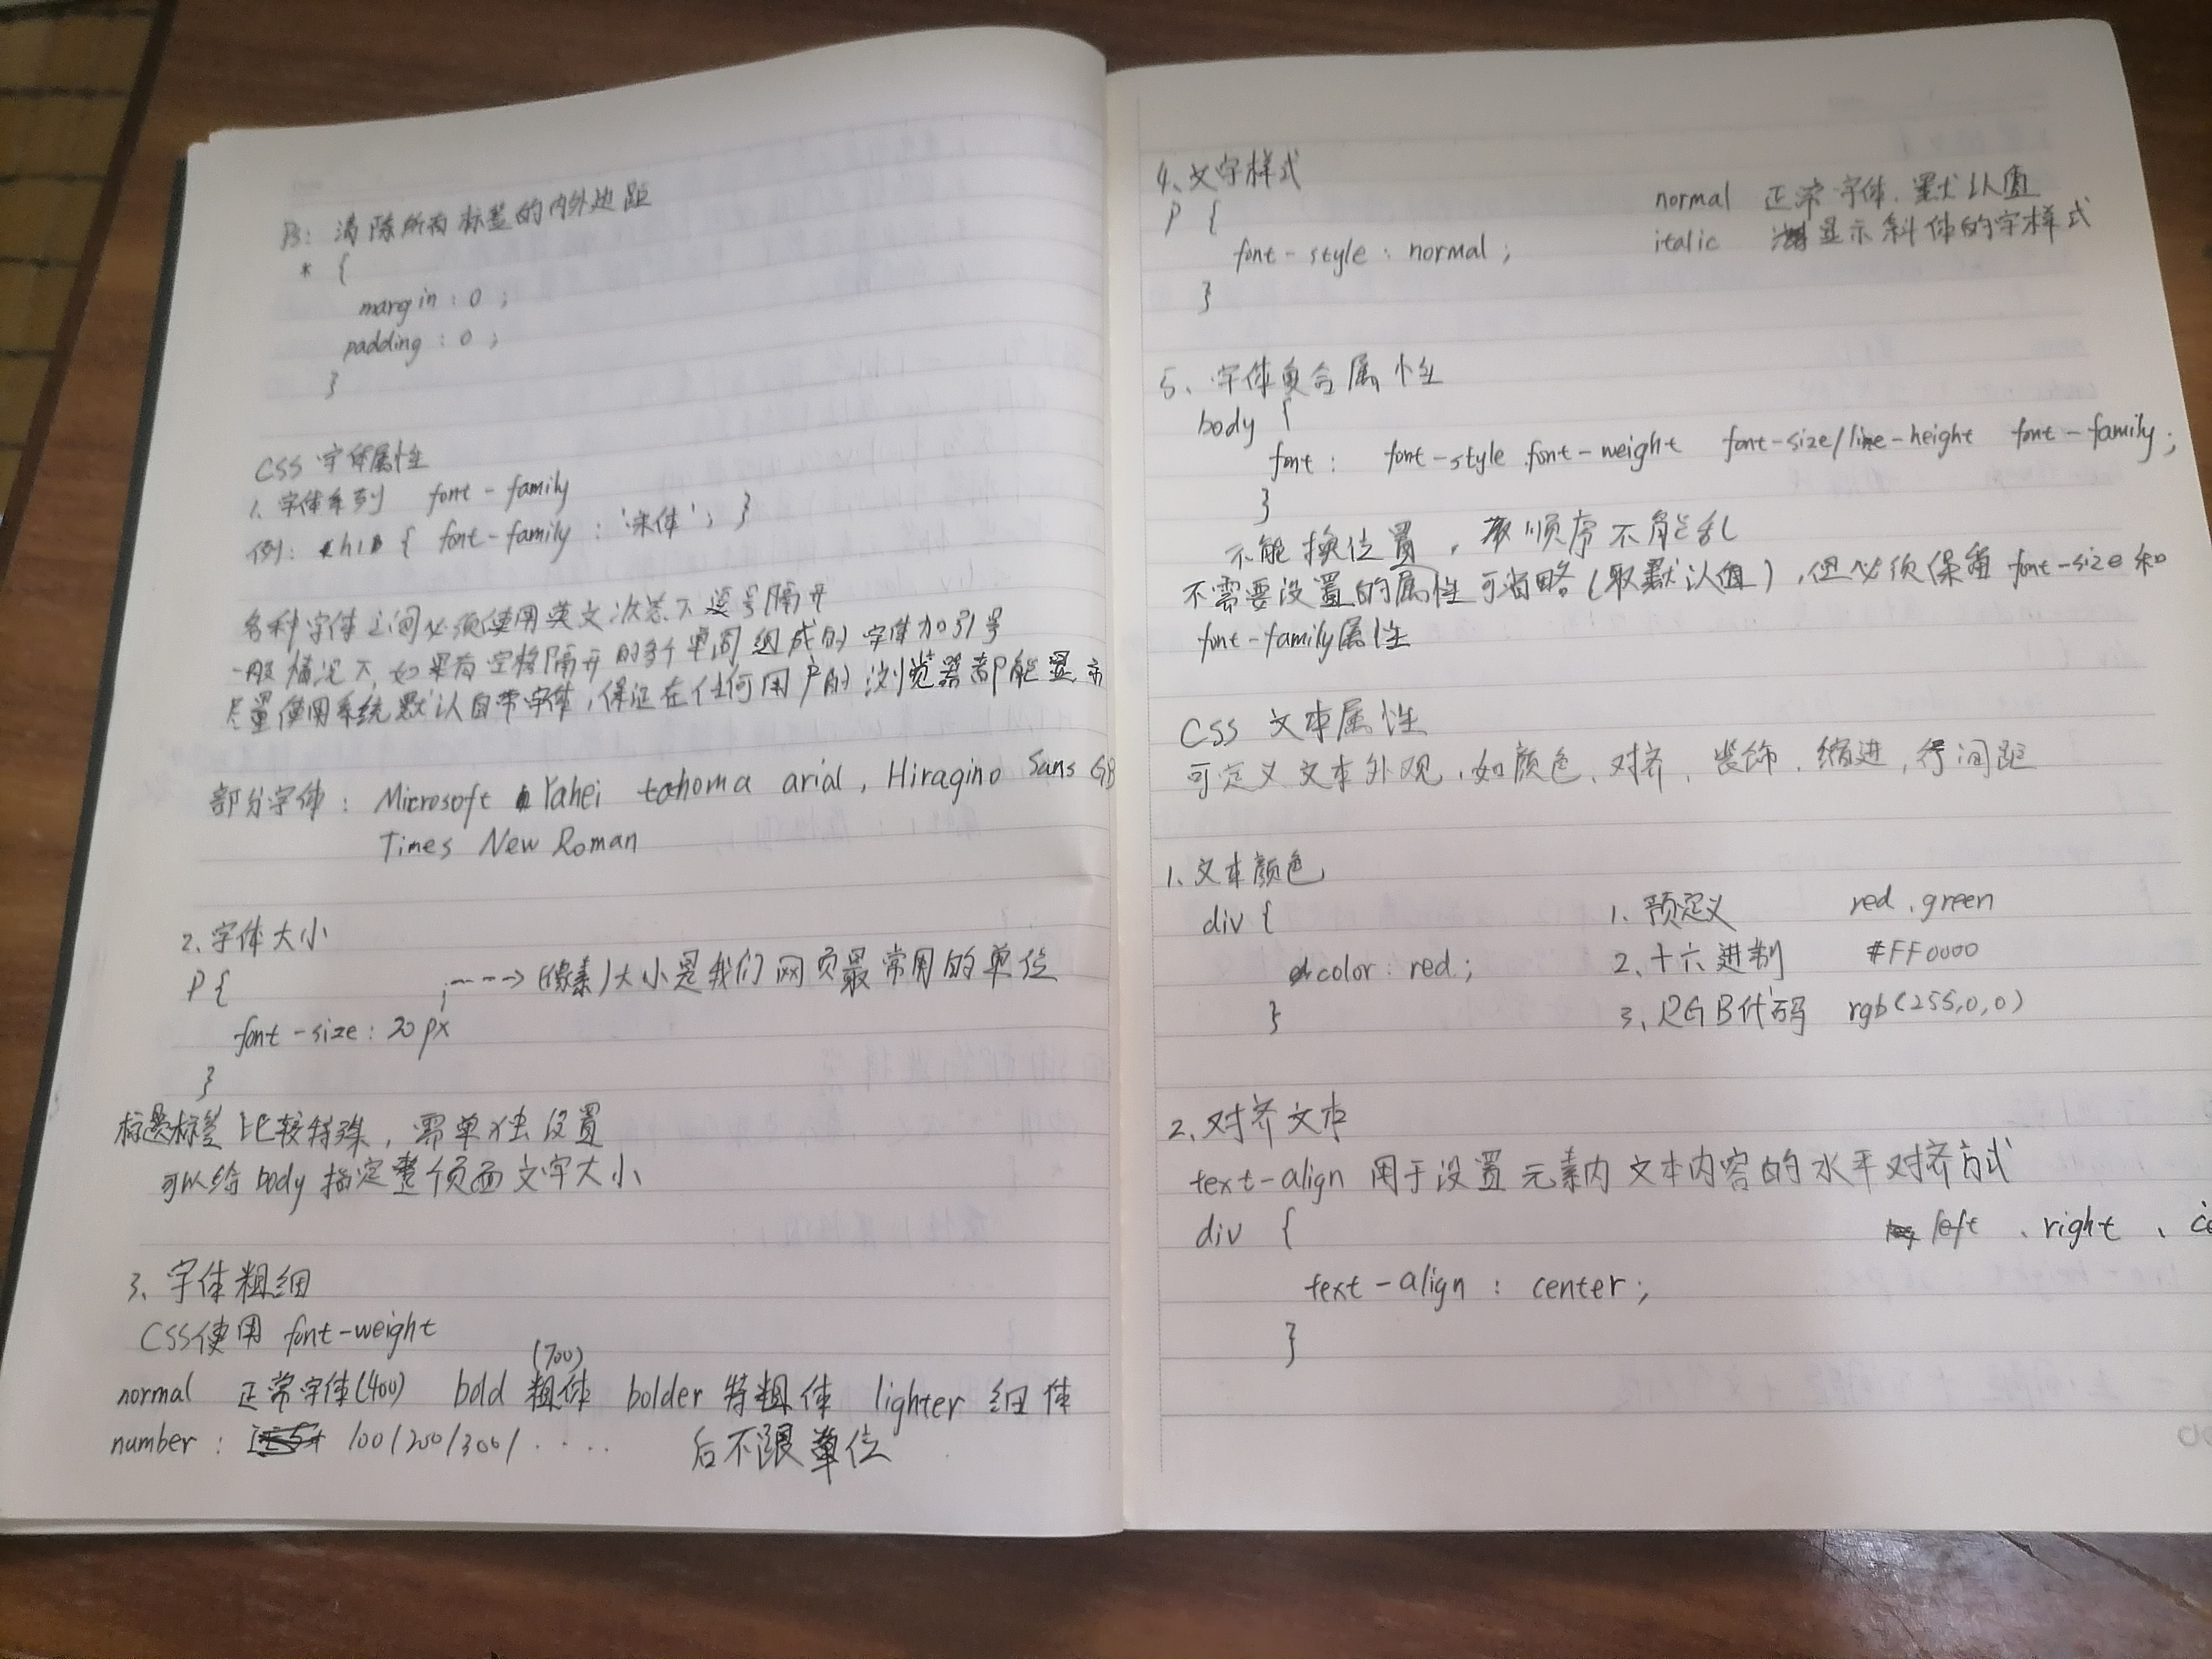 B: 清除所有标签的内外边距
* {
margin : 0 ;
padding : 0 ;
}
CSS 字体属性
1. 字体系列 font-family
例: h1 { font-family : '宋体' ; }
各种字体之间必须使用英文状态下逗号隔开
一般情况下,如果有空格隔开的多个单词组成的字体加引号
尽量使用系统默认自带字体,保证在任何用户的浏览器都能显示
部分字体 : Microsoft Yahei tahoma arial , Hiragino Sans GB
Times New Roman
2. 字体大小
P {
----> (像素)大小是我们网页最常用的单位
font-size : 20 px
}
标题标签比较特殊,需单独设置
可以给 body 指定整个页面文字大小
3、字体粗细
CSS使用 font-weight
(700)
normal 正常字体(400) bold 粗体 bolder 特粗体 lighter 细体
number : 100/200/300/ ..... 后不跟单位
4、文字样式
P {
normal 正常字体. 默认值
font-style : normal ;
italic 显示斜体的字样式
}
5、字体复合属性
body {
font : font-style font-weight font-size/line-height font-family ;
}
不能换位置 , 顺序不能乱
不需要设置的属性可省略(取默认值) , 但必须保留 font-size 和
font-family属性
CSS 文本属性
可定义文本外观 , 如颜色、对齐、装饰、缩进 , 行间距
1. 文本颜色
div {
color : red ;
}
1. 预定义 red . green
2. 十六进制 #FF0000
3. RGB代码 rgb(255,0,0)
2. 对齐文本
text-align 用于设置元素内文本内容的水平对齐方式
div {
left 、right 、
text-align : center ;
}